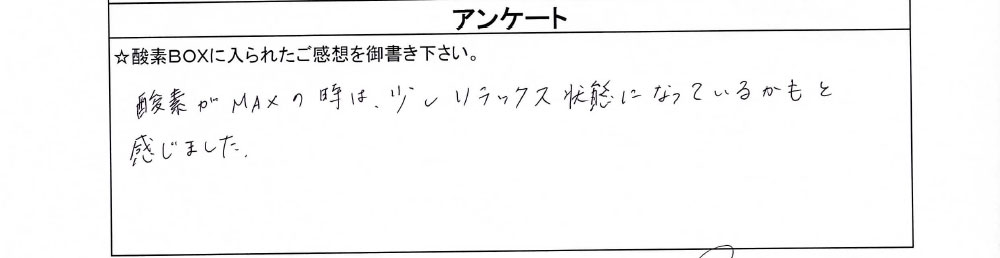 アンケート
☆酸素BOXに入られたご感想を御書き下さい。
酸素がMAXの時は、少しリラックス状態になっているかもと
感じました。